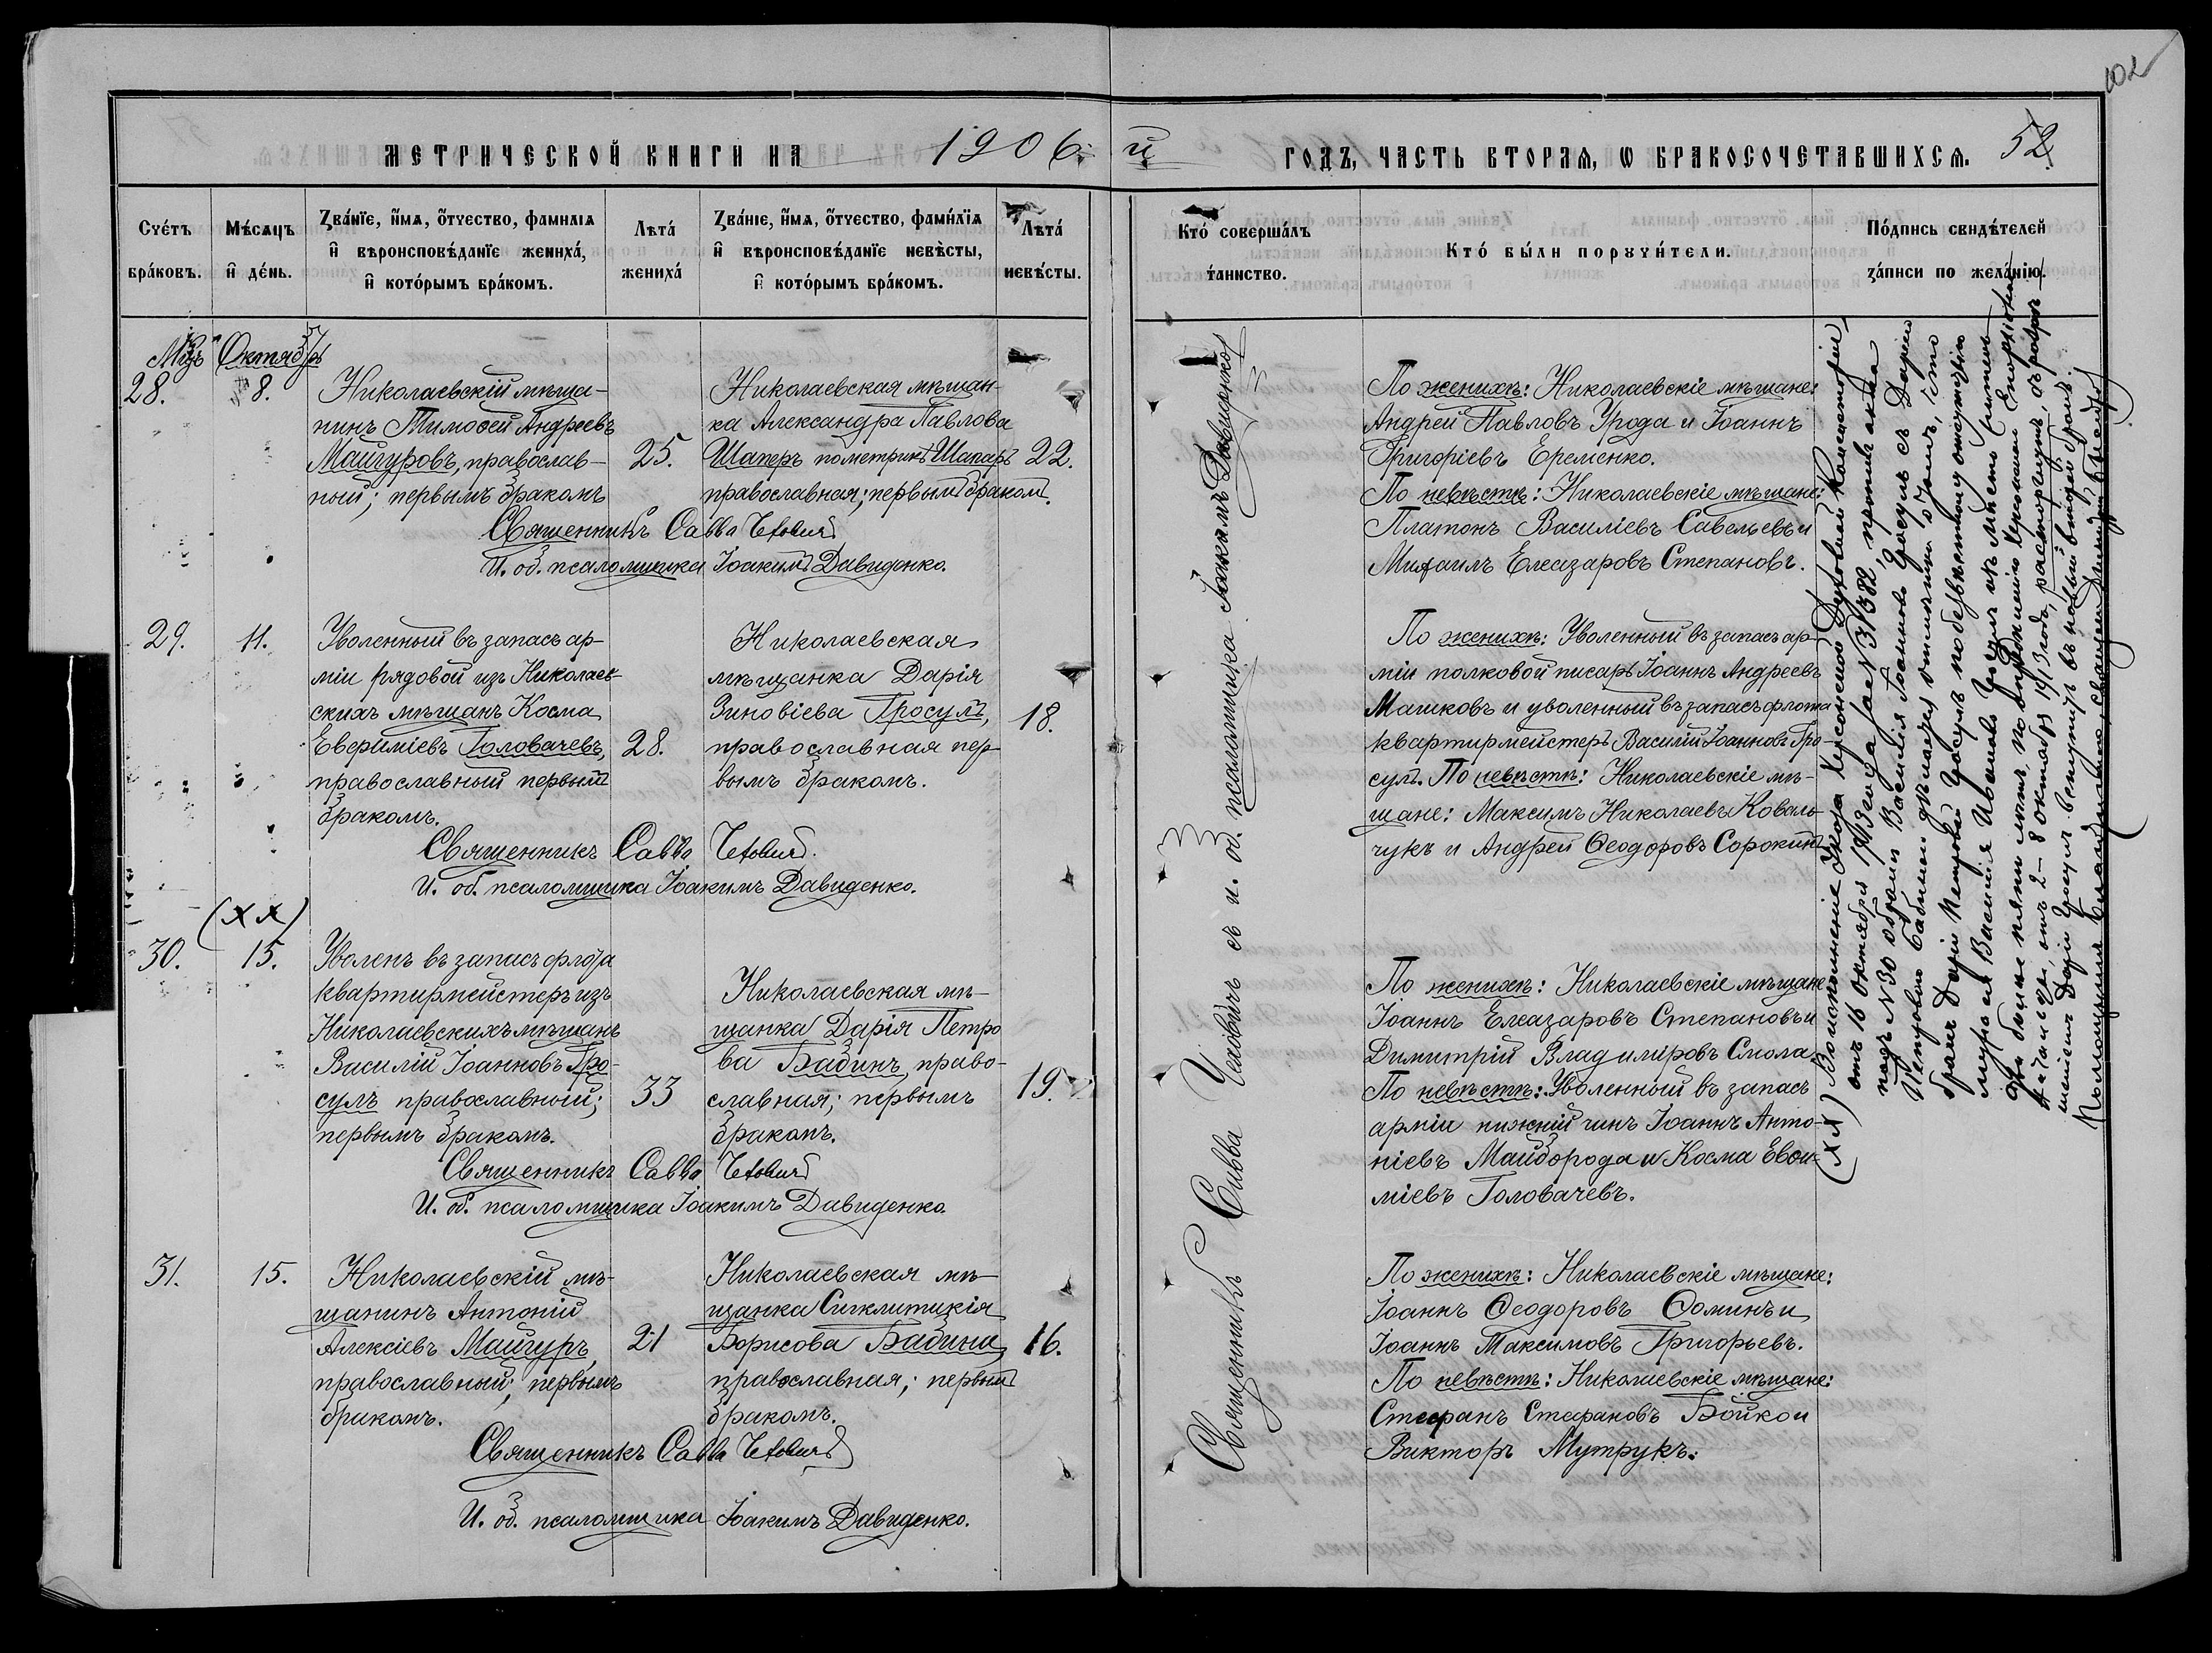 102
МЕТРИЧЕСКОЙ КНИГИ НА 1906 й ГОДЪ, ЧАСТЬ ВТОРАЯ, Ѡ БРАКОСОЧЕТАВШИХСЯ. 52
Счетъ браковъ.
Мѣсяцъ и день.
Званіе, имя, отчество, фамилія и вѣроисповѣданіе жениха, и которымъ бракомъ.
Лѣта жениха
Званіе, имя, отчество, фамилія и вѣроисповѣданіе невѣсты, и которымъ бракомъ.
Лѣта невѣсты.
Кто совершалъ таинство.
Кто были поручители.
Подпись свидѣтелей записи по желанію.
Мцъ Октябрь
28. 8.
Николаевскій мѣща-
нинъ Тимоѳей Андреевъ
Майгуровъ, православ-
ный; первымъ бракомъ
25.
Николаевская мѣщан-
ка Александра Павлова
Шаперъ по метрикѣ Шапаръ
православная; первым браком.
22.
Священникъ Савва Чехович
И. об. псаломщика Іоакимъ Давиденко.
По женихѣ: Николаевскіе мѣщане:
Андрей Павловъ Урода и Іоаннъ
Григоріевъ Еременко.
По невѣстѣ: Николаевскіе мѣщане:
Платонъ Василіевъ Савельевъ и
Михаилъ Елеазаровъ Степановъ.
29. 11.
Уволенный въ запасъ ар-
міи рядовой изъ Николаев-
скихъ мѣщанъ Косма
Евѳиміевъ Головачевъ,
православный первымъ
бракомъ.
28.
Николаевская
мѣщанка Дарія
Зиновіева Гросулъ,
православная пер-
вымъ бракомъ.
18.
Священникъ Савва Чехович.
И. об. псаломщика Іоакимъ Давиденко.
По женихѣ: Уволенный въ запасъ ар-
міи полковой писарь Іоаннъ Андреевъ
Машковъ и уволенный въ запасъ флота
квартирмейстеръ Василій Іоанновъ Гро-
сулъ. По невѣстѣ: Николаевскіе мѣ-
щане: Максимъ Николаевъ Коваль-
чукъ и Андрей Ѳеодоровъ Сорокинъ
(ХХ)
30. 15.
Уволенъ въ запасъ флота
квартирмейстеръ изъ
Николаевскихъ мѣщанъ
Василій Іоанновъ Гро-
сулъ православный;
первымъ бракомъ.
33
Николаевская мѣ-
щанка Дарія Петро
ва Бабинъ, право-
славная; первымъ
бракомъ.
19.
Священникъ Савва Чехович
И. об. псаломщика Іоакимъ Давиденко.
По женихѣ: Николаевскіе мѣщане
Іоаннъ Елеазаровъ Степановъ и
Димитрій Владиміровъ Смола.
По невѣстѣ: Уволенный въ запасъ
арміи нижній чинъ Іоаннъ Анто-
ніевъ Майборода и Косма Евѳи-
міевъ Головачевъ.
31. 15.
Николаевскій мѣ-
щанинъ Антоній
Алексіевъ Майгуръ,
православный; первымъ
бракомъ.
21
Николаевская мѣ-
щанка Сигклитикія
Борисова Бабина,
православная; первымъ
бракомъ.
16.
Священникъ Савва Чехович
И. об. псаломщика Іоакимъ Давиденко.
По женихѣ: Николаевскіе мѣщане:
Іоаннъ Ѳеодоровъ Ѳоминъ и
Іоаннъ Максимовъ Григорьевъ.
По невѣстѣ: Николаевскіе мѣщане:
Стефанъ Стефановъ Бойко и
Викторъ Мутрукъ.
Священникъ Савва Чеховичъ съ и. об. псаломщика Іоакимъ Давиденко
(ХХ) Во исполненіе Указа Херсонской Духовной Консисторіи,
отъ 16 октября 1913 года за № 31382, противъ акта
подъ № 30 о бракѣ Василія Іоаннова Гросулъ съ Даріею
Петровою Бабиной дѣлается отмѣтка о томъ, что
бракъ Даріи Петровой Гросулъ по безвѣстному отсутствію
мужа ея Василія Иванова Гросулъ изъ мѣста жительства
болѣе пяти лѣтъ, по опредѣленію Херсонскаго Епархіальнаго
Начальства, отъ 2–8 октября 1913 года, расторгнутъ, съ
Даріи Гросулъ вступить въ новый второй бракъ.